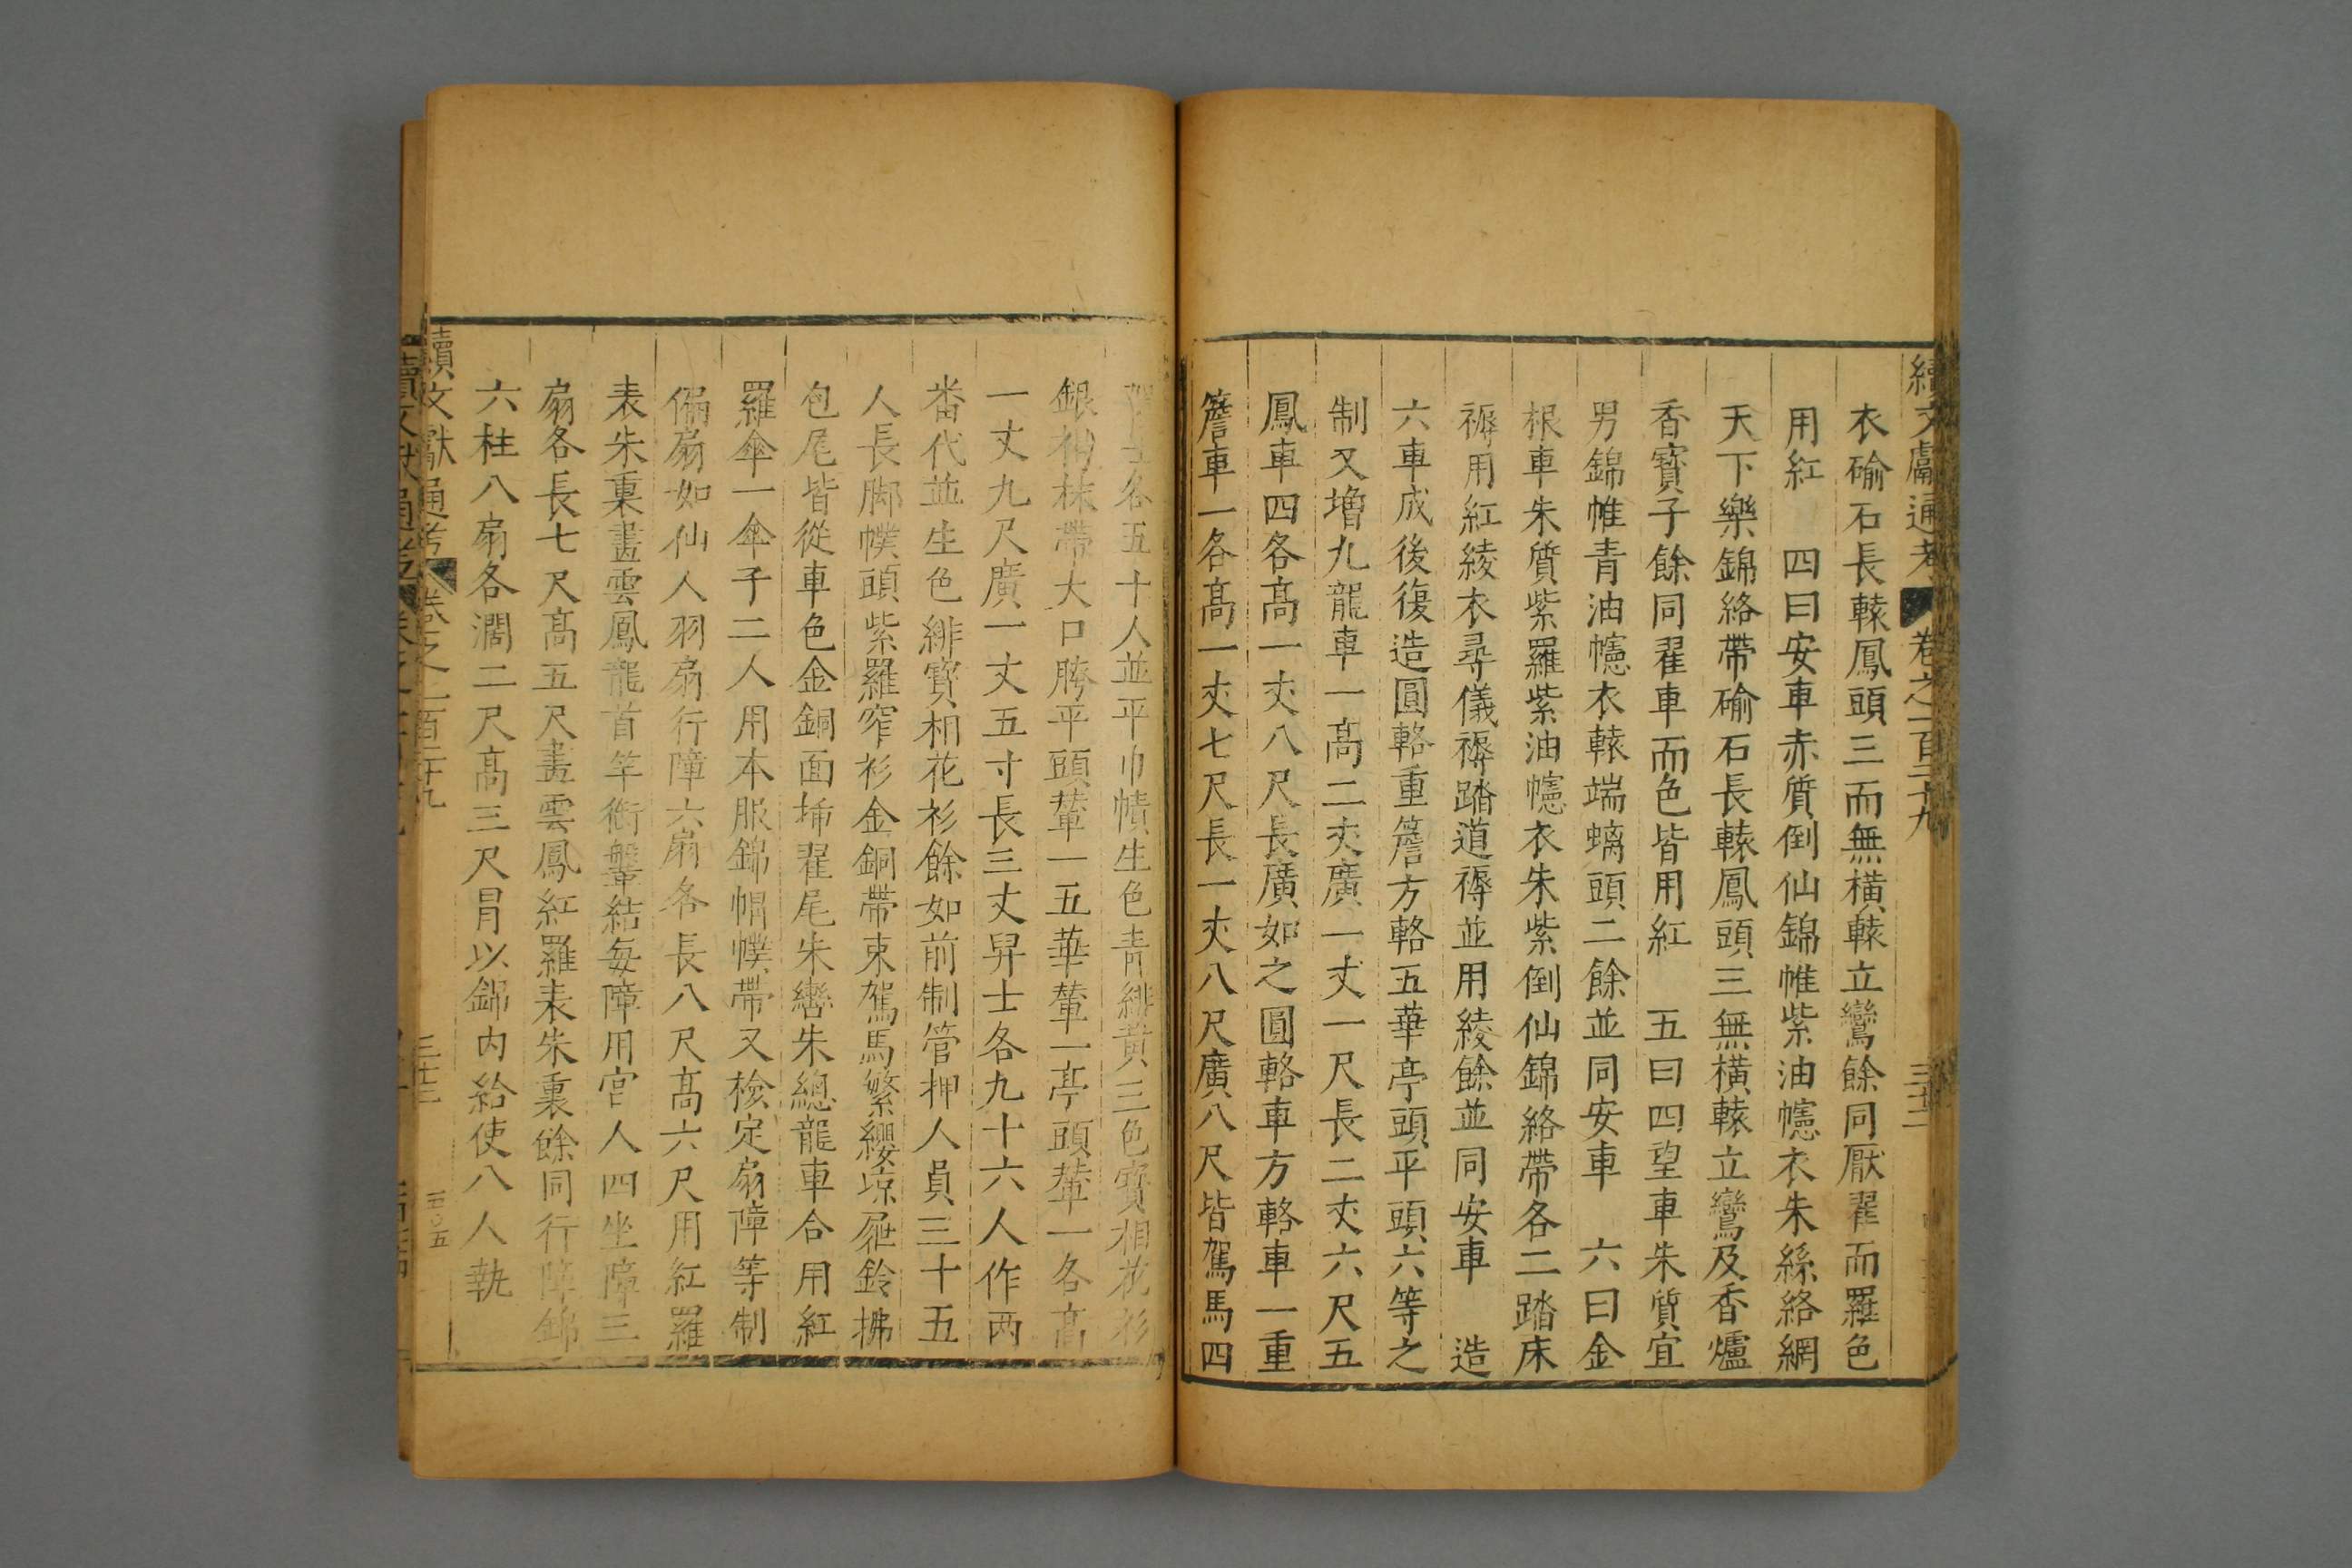 續文獻通考 卷之一百二十九
衣碖石長轅鳳頭三而無橫轅立鸞餘同厭翟而羅色
用紅 四曰安車赤質倒仙錦帷紫油幰衣朱絲絡網
天下樂錦絡帶碖石長轅鳳頭三無橫轅立鸞及香爐
香寳子餘同翟車而色皆用紅 五曰四望車朱質宜
男錦帷青油幰衣轅端螭頭二餘並同安車 六曰金
根車朱質紫羅紫油幰衣朱紫倒仙錦絡帶各二踏床
褥用紅綾衣尋儀褥踏道褥並用綾餘並同安車 造
六車成後復造圓輅重簷方輅五華亭頭平頭六等之
制又增九龍車一髙二丈廣一丈一尺長二丈六尺五
鳳車四各髙一丈八尺長廣如之圓輅車方輅車一重
簷車一各髙一丈七尺長一丈八尺廣八尺皆駕馬四
駕士各五十人並平巾幘生色青緋黃三色寳相花衫
銀褐抹帶大口胯平頭輦一五華輦一亭頭輦一各髙
一丈九尺廣一丈五寸長三丈舁士各九十六人作兩
畨代並生色緋寳相花衫餘如前制管押人員三十五
人長脚幞頭紫羅窄衫金銅帶束駕馬繁纓凉屜鈴拂
包尾皆從車色金銅面揷翟尾朱轡朱總龍車合用紅
羅傘一傘子二人用本服錦帽幞帶又檢定扇障等制
偏扇如仙人羽扇行障六扇各長八尺髙六尺用紅羅
表朱裏畫雲鳳龍首竿銜鞶結每障用宫人四坐障三
扇各長七尺髙五尺畫雲鳳紅羅表朱裏餘同行障錦
六柱八扇各濶二尺髙三尺冐以錦内給使八人執
續文獻通考 卷之一百二十九